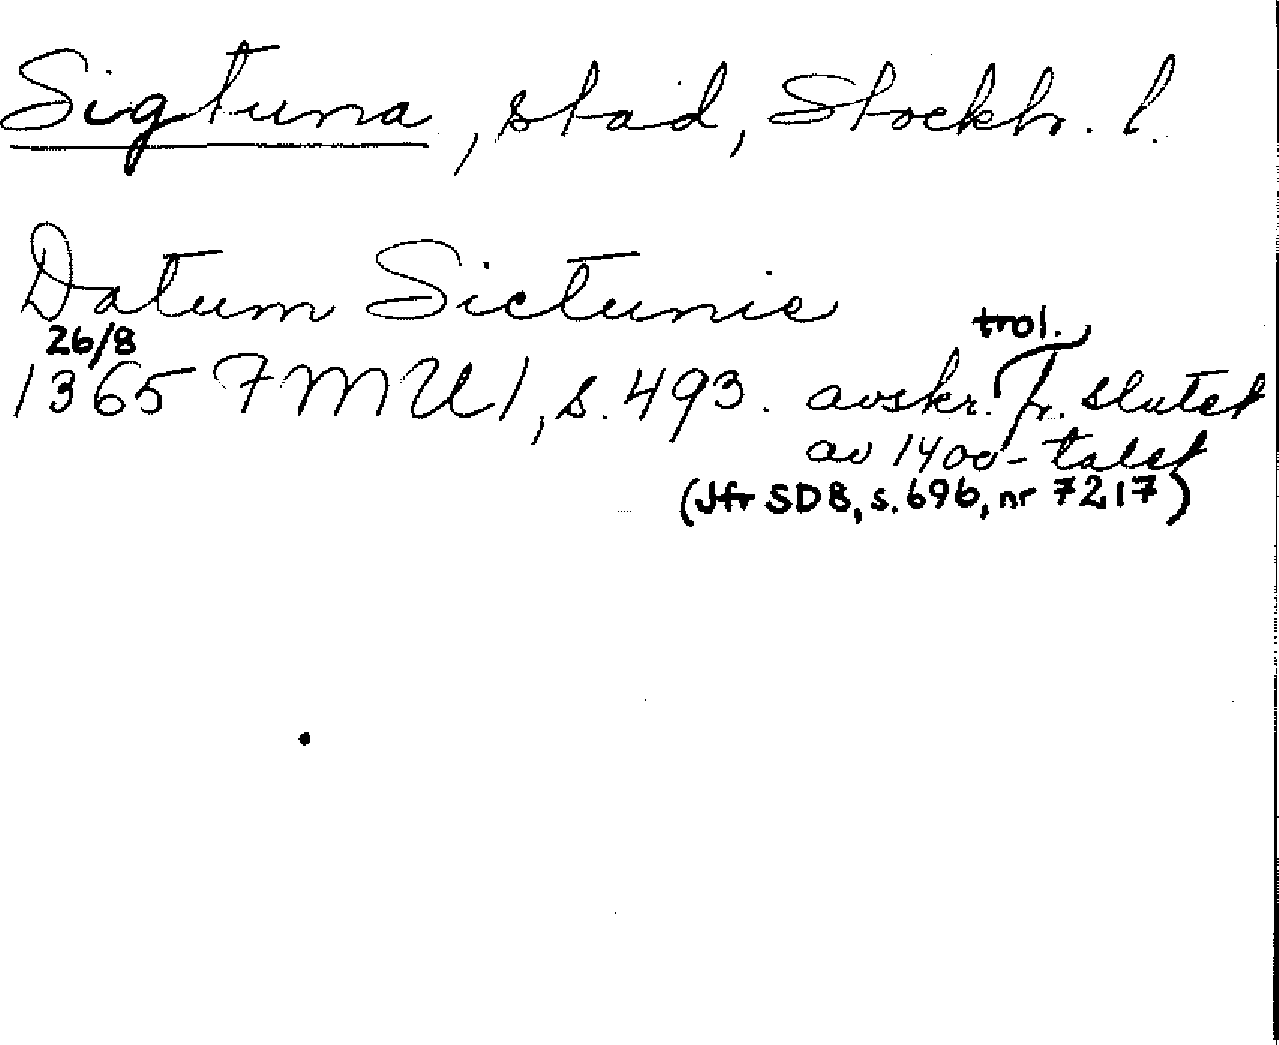 Sigtuna, stad, Stockh. l.
Datum Sictunie
26/8
1365 FMU 1, s. 493. avskr. trol. fr. slutet
av 1400-talet
(Jfr SD8, s. 696, nr 7217)